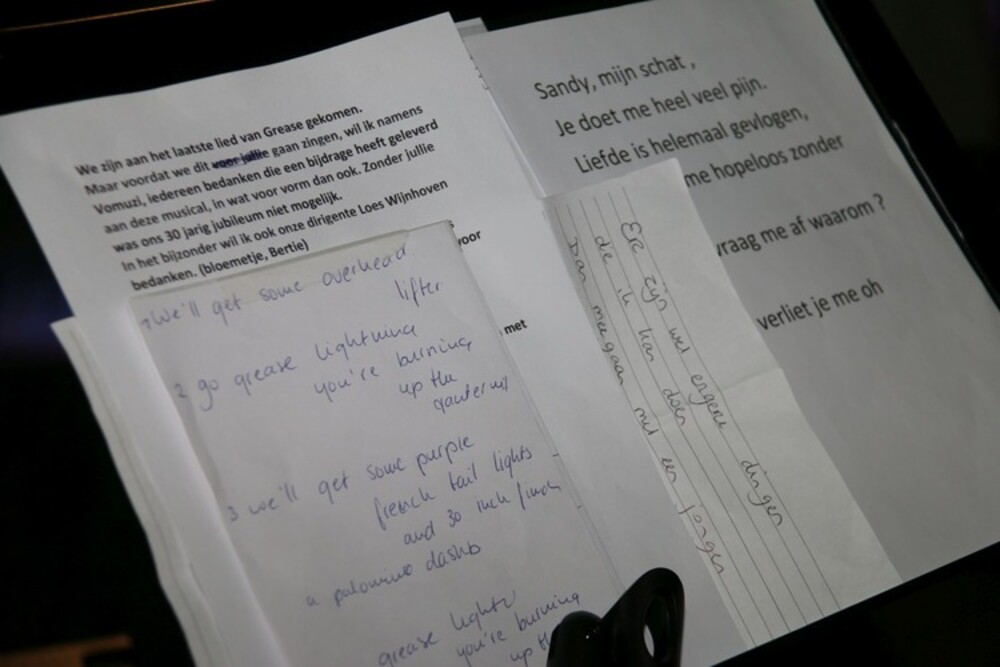 We zijn aan het laatste lied van Grease gekomen.
Maar voordat we dit voor jullie gaan zingen, wil ik namens
Vomuzi, iedereen bedanken die een bijdrage heeft geleverd
aan deze musical, in wat voor vorm dan ook. Zonder jullie
was ons 30 jarig jubileum niet mogelijk.
In het bijzonder wil ik ook onze dirigente Loes Wijnhoven
bedanken. (bloemetje, Bertie)
voor
met
1 We'll get some overhead
lifter
2 go grease lightning
you're burning
up the
3 we'll get some purple
french tail lights
and 30 inch
a palomino dashb
grease
you're burning
up
Er zijn wel ergere dingen
die ik kan doen
Dan meegaan met een jongen
Sandy, mijn schat ,
Je doet me heel veel pijn.
Liefde is helemaal gevlogen,
me hopeloos zonder
vraag me af waarom ?
verliet je me oh